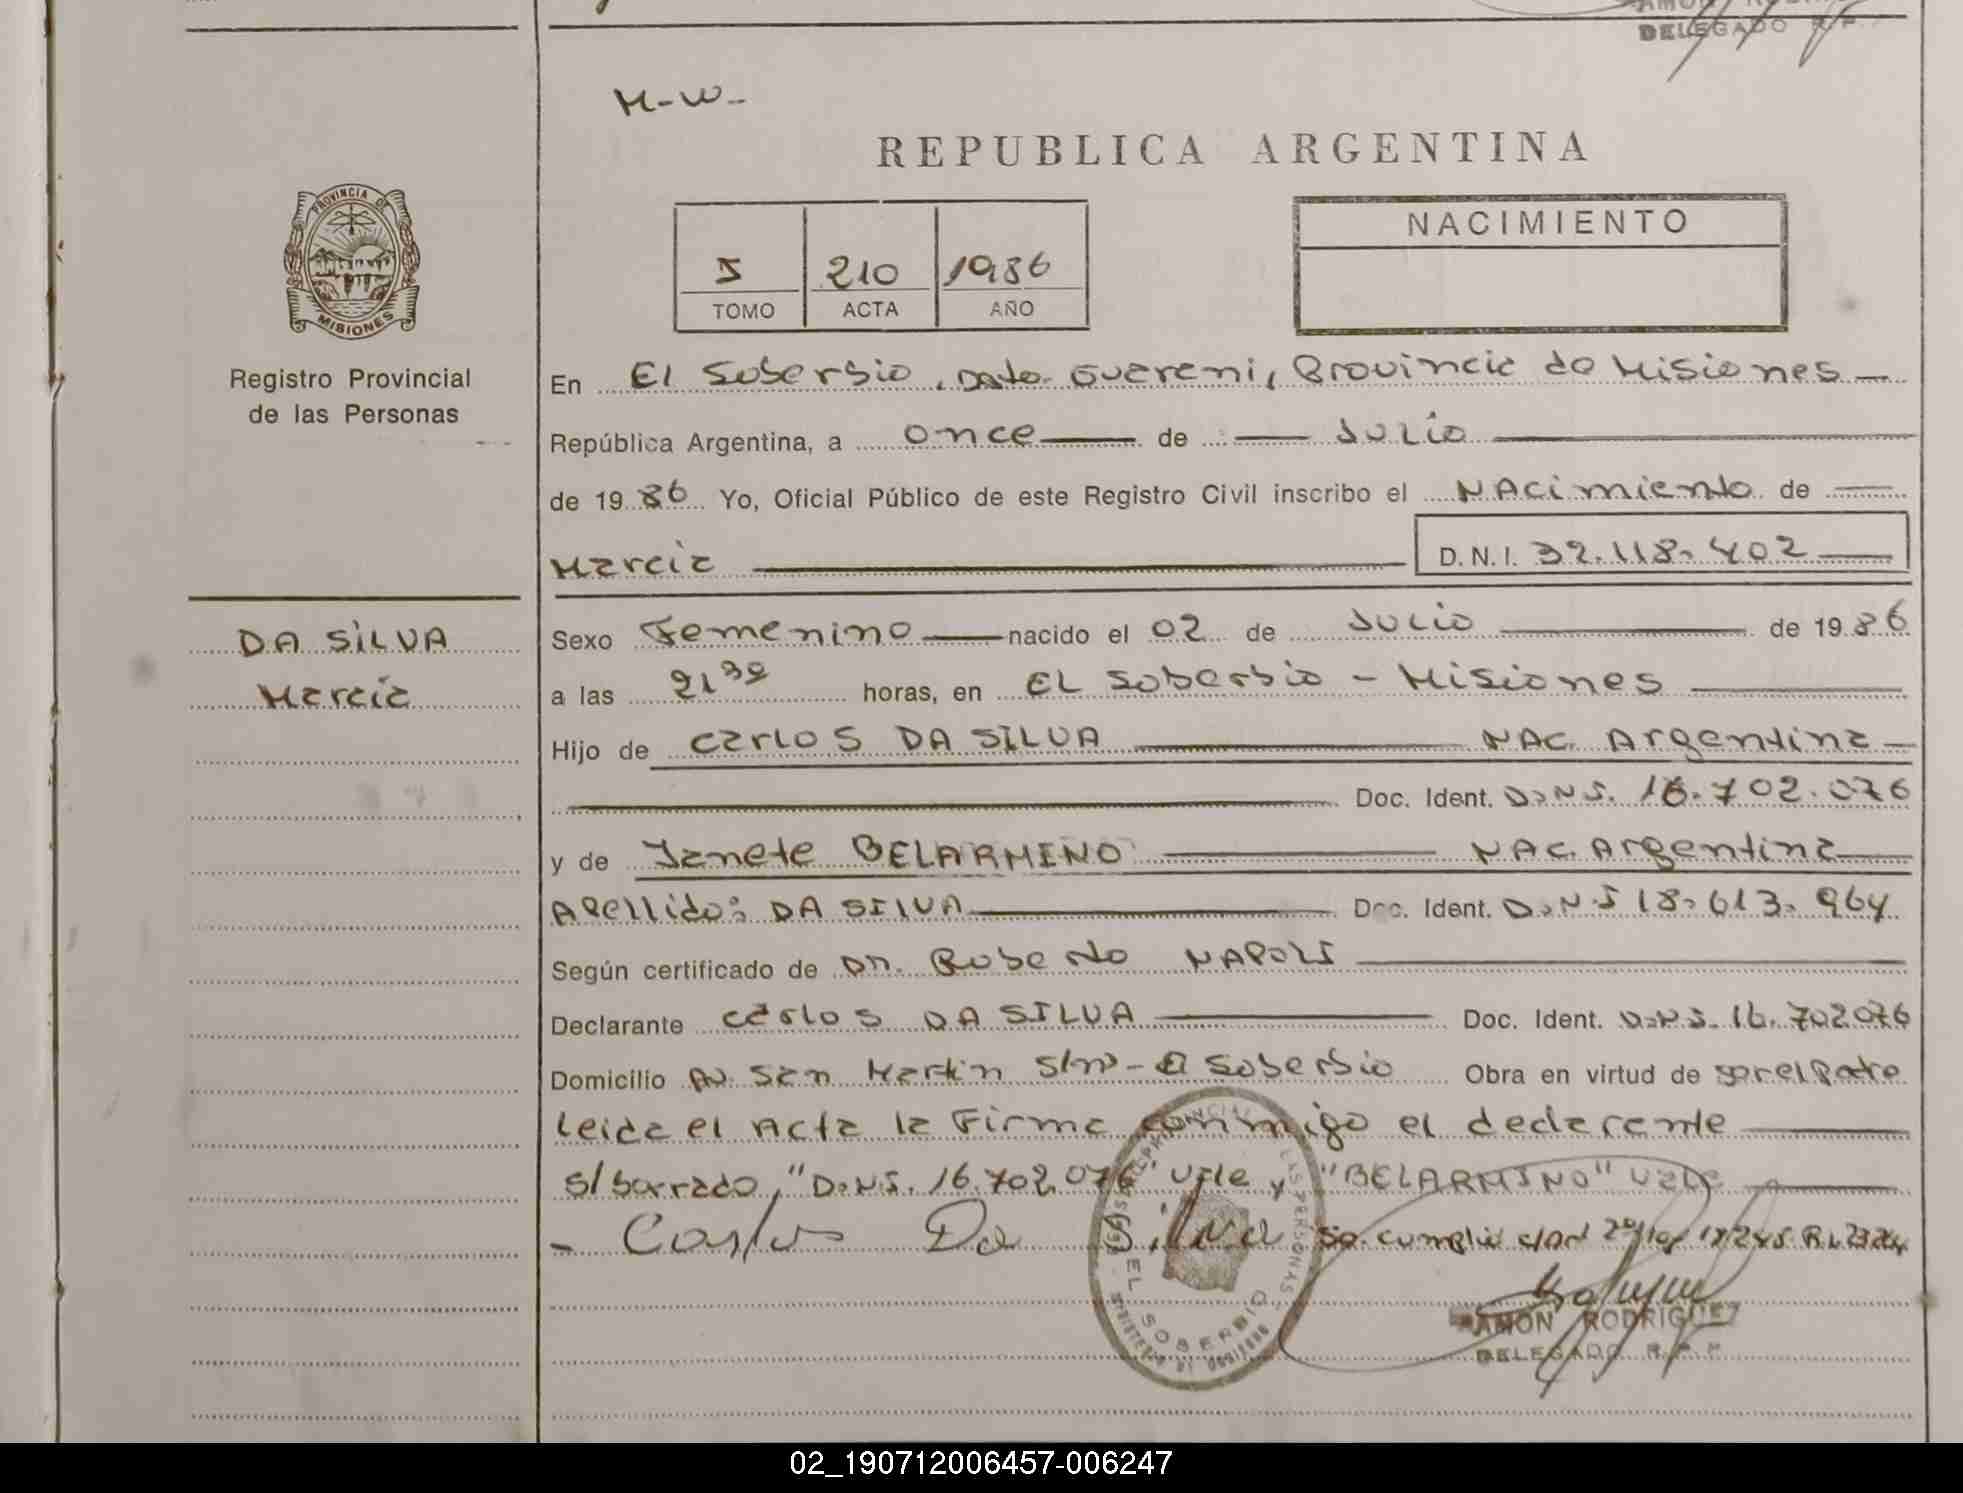 DELEGADO R.P.
M-W-
REPUBLICA ARGENTINA
PROVINCIA DE
MISIONES
Registro Provincial
de las Personas
I 210 1986
TOMO ACTA AÑO
NACIMIENTO
En El Soberbio, Dpto. Guarani, Provincia de Misiones
República Argentina, a once de Julio
de 1986 Yo, Oficial Público de este Registro Civil inscribo el NAcimiento de
Marcia D.N.I. 32.118.402
DA SILVA
Marcia
Sexo Femenino nacido el 02 de Julio de 1986
a las 21 30 horas, en EL Soberbio - Misiones
Hijo de Carlos DA SILVA NAC. Argentina
Doc. Ident. D.N.I. 16.702.076
y de Janete BELARMINO NAC. Argentina
Apellido: DA SILVA Doc. Ident. D.N.I 18.613.964
Según certificado de Dr. Roberto NAPOLI
Declarante Carlos DA SILVA Doc. Ident. D.N.I. 16.702.076
Domicilio Av. San Martin S/nº - El Soberbio Obra en virtud de ser el Padre
Leida el Acta la Firma conmigo el declarante
s/borrado, "D.N.I. 16.702.076" Vale y "BELARMINO" Vale
- Carlos Da Silva Se cumplió c/art 2º/Ley
EL SOBERBIO
RAMON RODRIGUEZ
DELEGADO R.P.P.
02_190712006457-006247